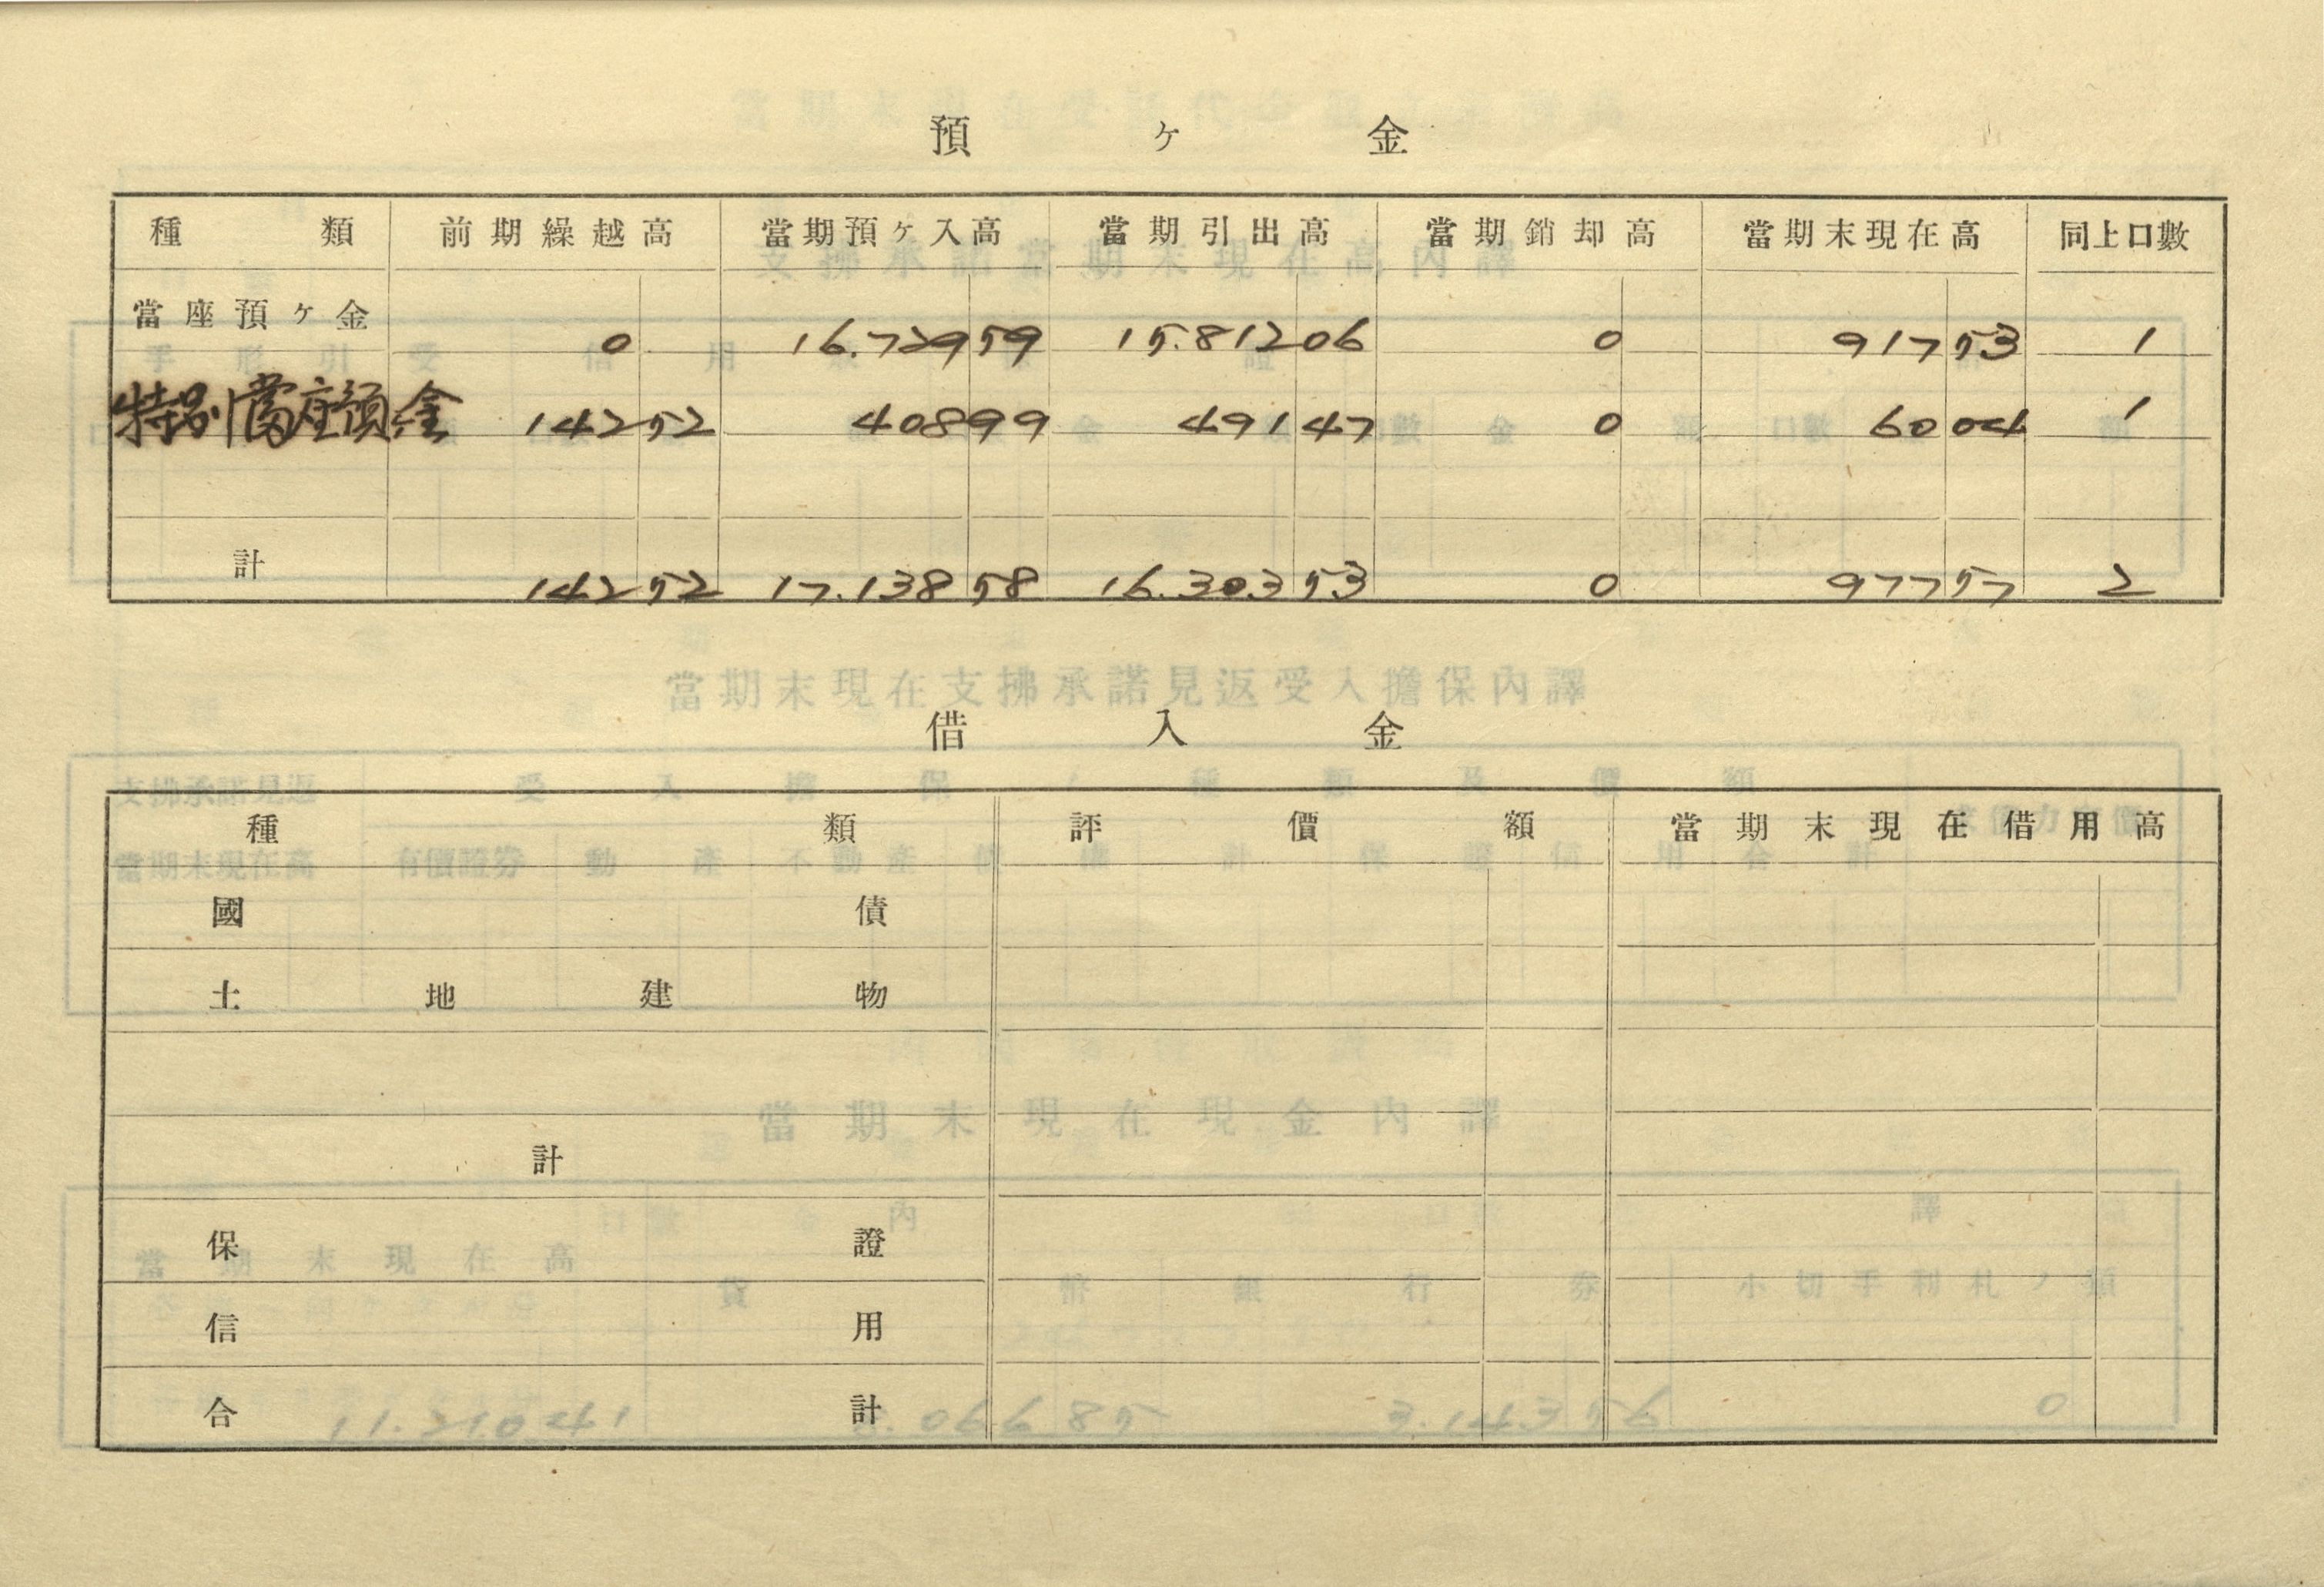 預ヶ金
種類 前期繰越高 當期預ヶ入高 當期引出高 當期銷却高 當期末現在高 同上口數
當座預ヶ金 0 16.729 59 15.812 06 0 917 53 1
特別當座預金 142 52 408 99 491 47 0 60 04 1
計 142 52 17.138 58 16.303 53 0 977 57 2
借入金
種類 評價額 當期末現在借用高
國債
土地建物
計
保證
信用
合計